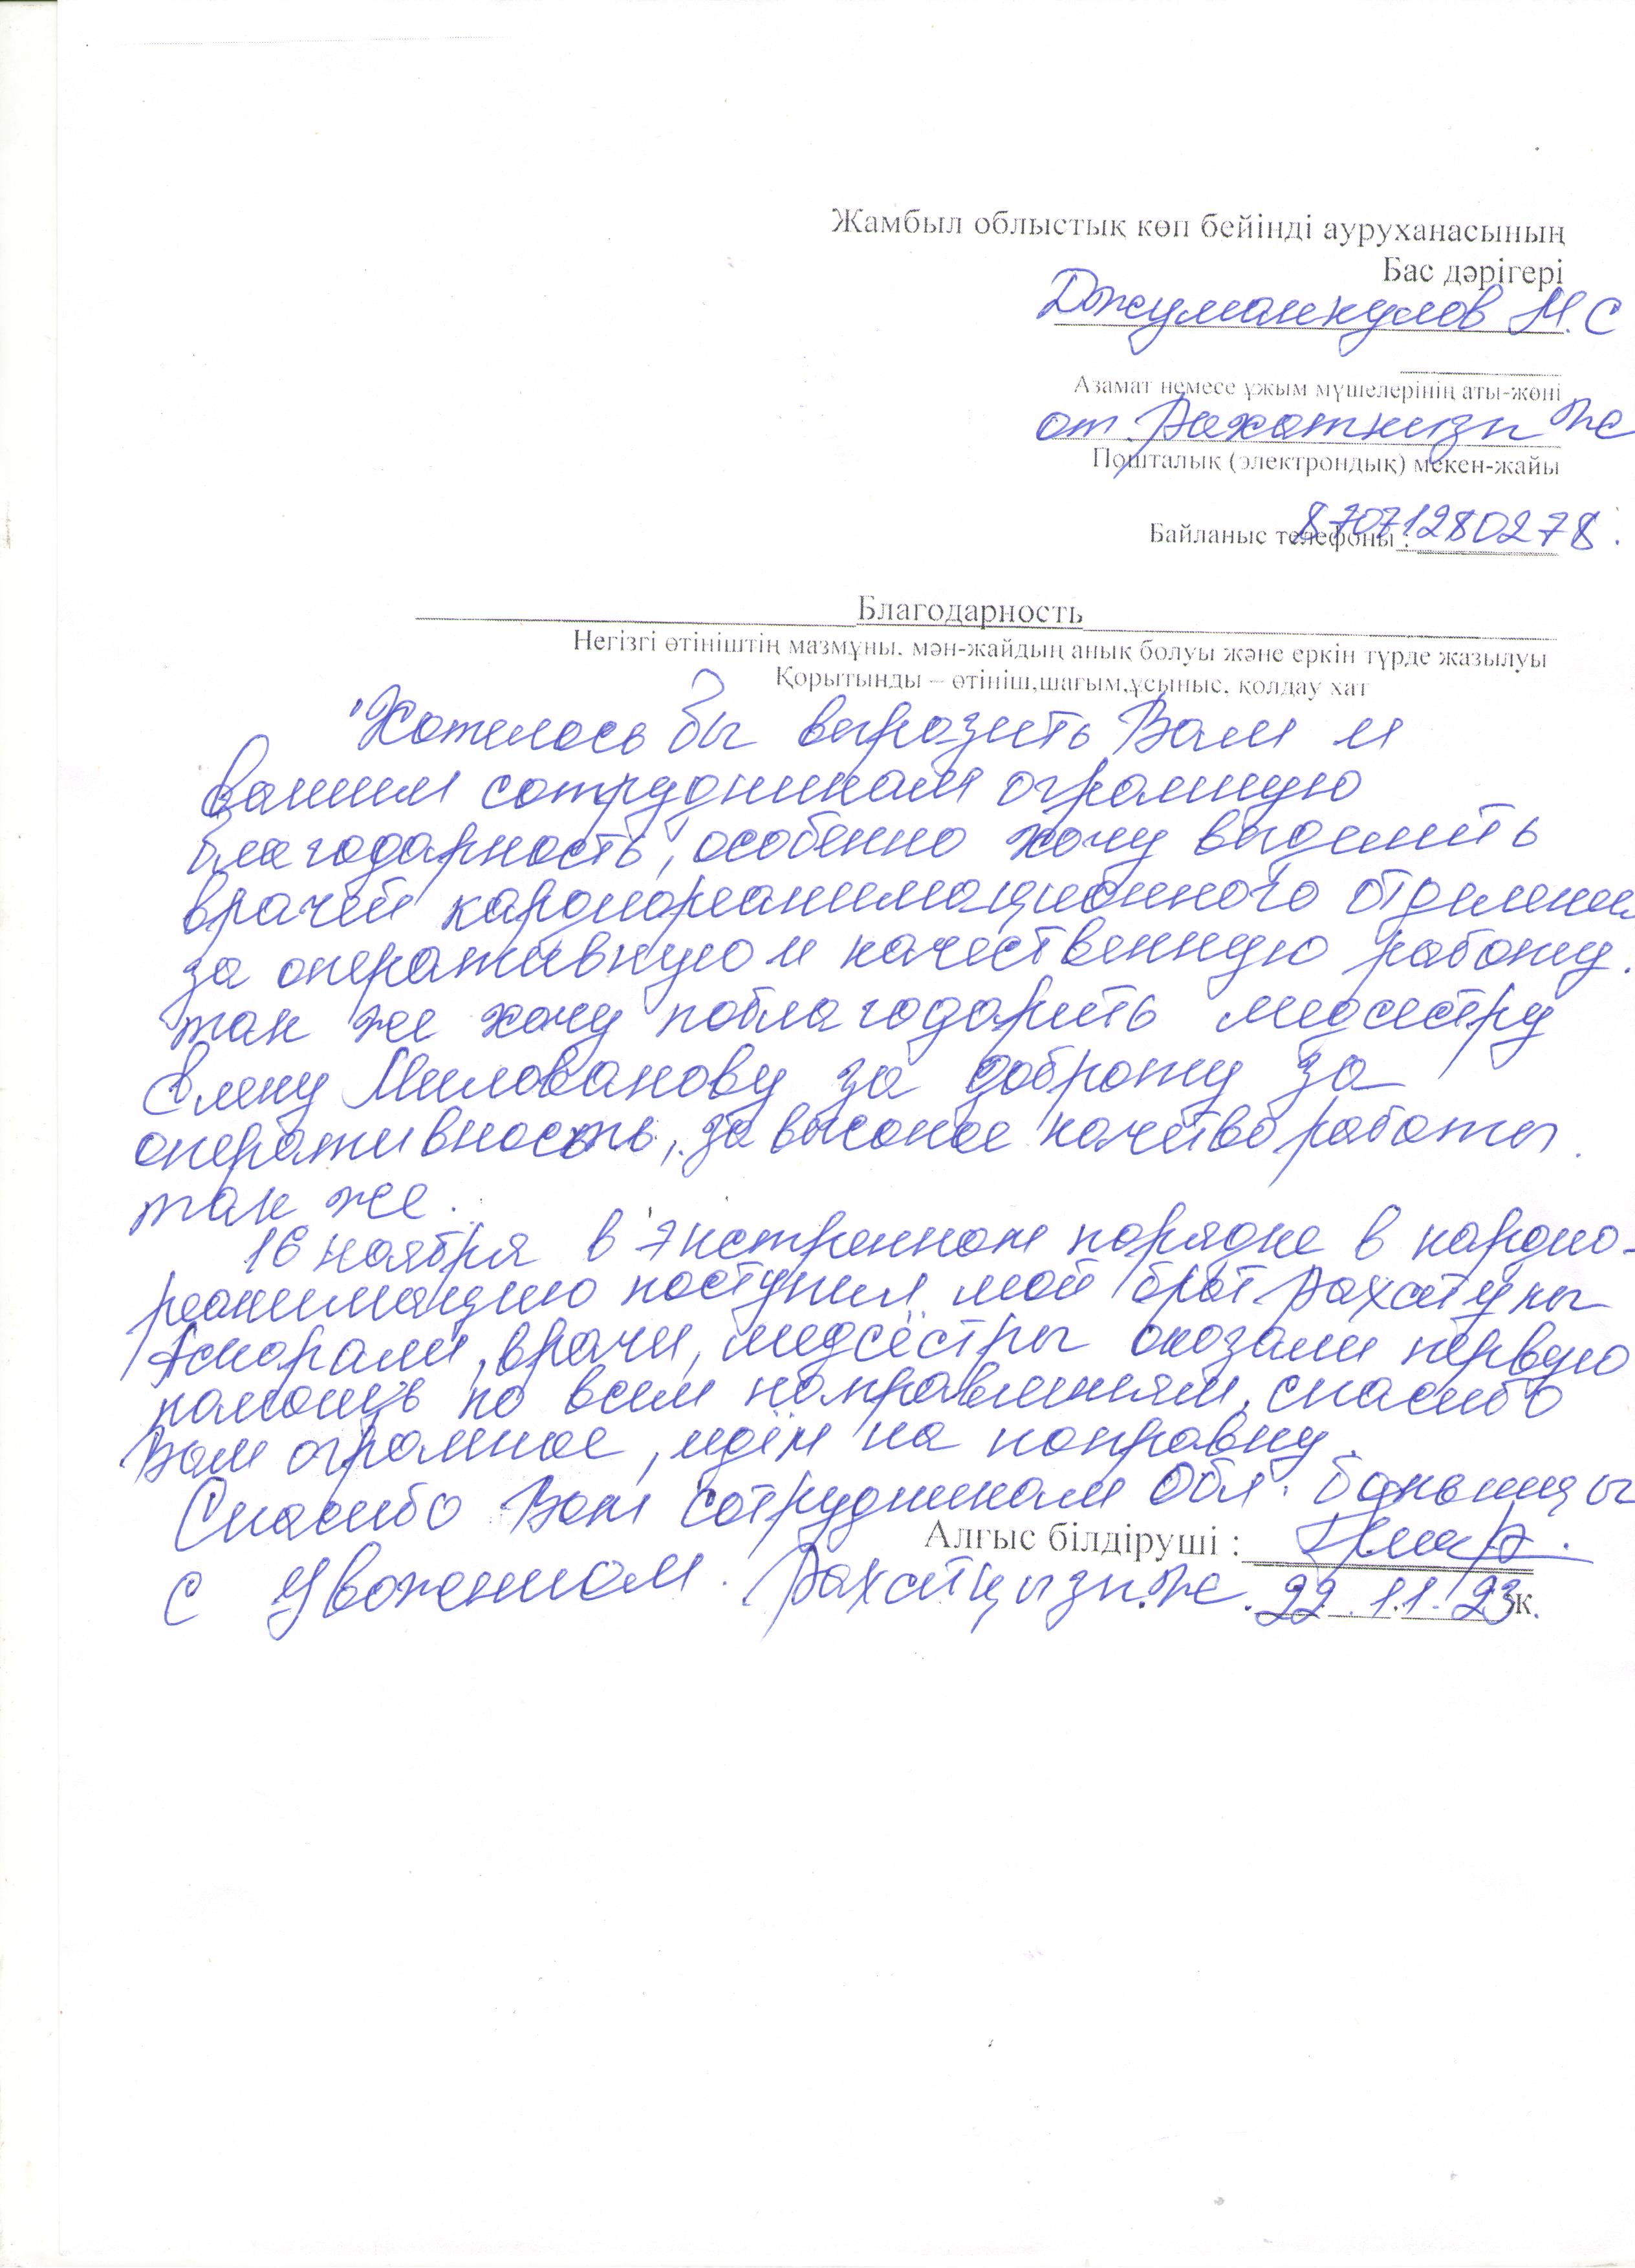 Жамбыл облыстық көп бейінді ауруханасының
Бас дәрігері
Джуманкулов М.С
Азамат немесе ұжым мүшелерінің аты-жөні
от Рахаткизи Ж
Пошталық (электрондық) мекен-жайы
Байланыс телефоны : 87071280278.
Благодарность
Негізгі өтініштің мазмұны, мән-жайдың анық болуы және еркін түрде жазылуы
Қорытынды – өтініш,шағым,ұсыныс, қолдау хат
Хотелось бы выразить Вам и
вашим сотрудникам огромную
благодарность, особенно хочу выделить
врачей кардиореанимационного отделени
за оперативную и качественную работу.
так же хочу поблагодарить медсестру
Елену Милованову за доброту за
оперативность, за высокое качество работы.
так же.
16 ноября в экстренном порядке в кардио-
реанимацию поступил мой брат Рахатулы
Аскорали, врачи, медсёстры оказали первую
помощь по всем направлениям, спасибо
Вам огромное, идём на поправку.
Спасибо Вам сотрудникам Обл. больницы
Алғыс білдіруші :
с Уважением. Рахатқызы.Ж. 22.11.23 ж.